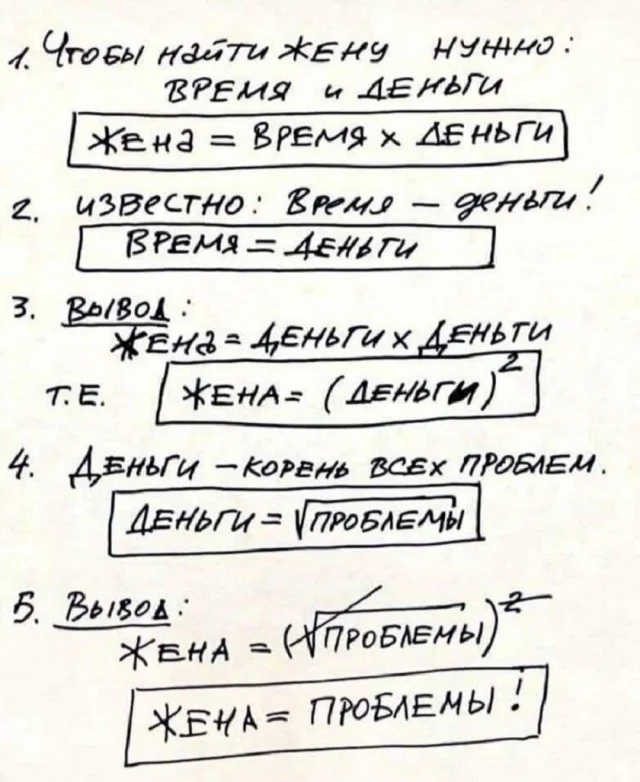 1. Чтобы найти жену нужно:
время и деньги
жена = время x деньги
2. известно: время – деньги!
время = деньги
3. Вывод:
жена = деньги x деньги
т.е. жена = (деньги)²
4. Деньги – корень всех проблем.
деньги = √проблемы
5. Вывод:
жена = (√проблемы)²
жена = проблемы!